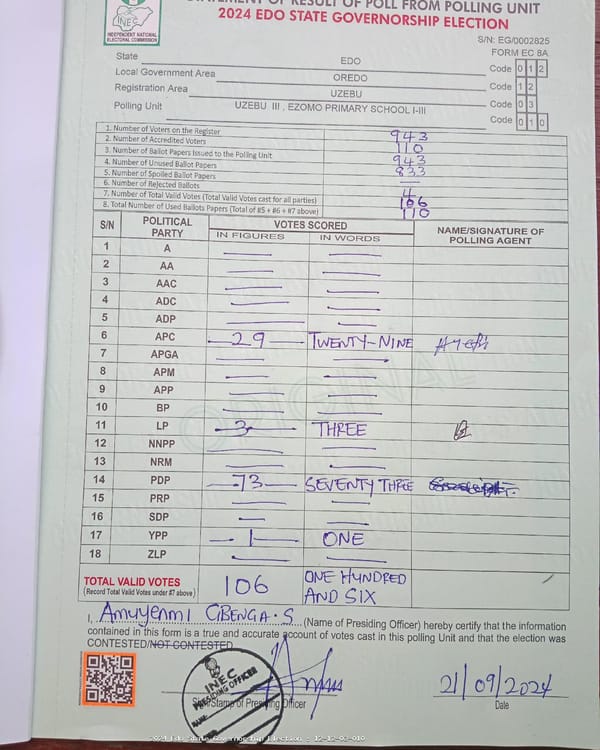 STATEMENT OF RESULT OF POLL FROM POLLING UNIT
2024 EDO STATE GOVERNORSHIP ELECTION
INEC
INDEPENDENT NATIONAL
ELECTORAL COMMISSION
S/N: EG/0002825
FORM EC 8A
State EDO Code 0 1 2
Local Government Area OREDO Code 1 2
Registration Area UZEBU Code 0 3
Polling Unit UZEBU III , EZOMO PRIMARY SCHOOL I-III Code 0 1 0
1. Number of Voters on the Register 943
2. Number of Accredited Voters 110
3. Number of Ballot Papers Issued to the Polling Unit 943
4. Number of Unused Ballot Papers 833
5. Number of Spoiled Ballot Papers —
6. Number of Rejected Ballots 4
7. Number of Total Valid Votes (Total Valid Votes cast for all parties) 106
8. Total Number of Used Ballots Papers (Total of #5 + #6 + #7 above) 110
S/N POLITICAL PARTY VOTES SCORED NAME/SIGNATURE OF POLLING AGENT
IN FIGURES IN WORDS
1 A — —
2 AA — —
3 AAC — —
4 ADC — —
5 ADP — —
6 APC 29 TWENTY-NINE
7 APGA — —
8 APM — —
9 APP — —
10 BP — —
11 LP 3 THREE
12 NNPP — —
13 NRM — —
14 PDP 73 SEVENTY THREE
15 PRP — —
16 SDP — —
17 YPP 1 ONE
18 ZLP — —
ORIGINAL
TOTAL VALID VOTES 106 ONE HUNDRED
(Record Total Valid Votes under #7 above) AND SIX
I, Amuyenmi GBENGA . S (Name of Presiding Officer) hereby certify that the information
contained in this form is a true and accurate account of votes cast in this polling Unit and that the election was
CONTESTED/NOT CONTESTED
INEC
PRESIDING OFFICER
NAME:
Stamp of Presiding Officer
21/09/2024
Date
2024 Edo State Governorship Election - 12-12-03-010